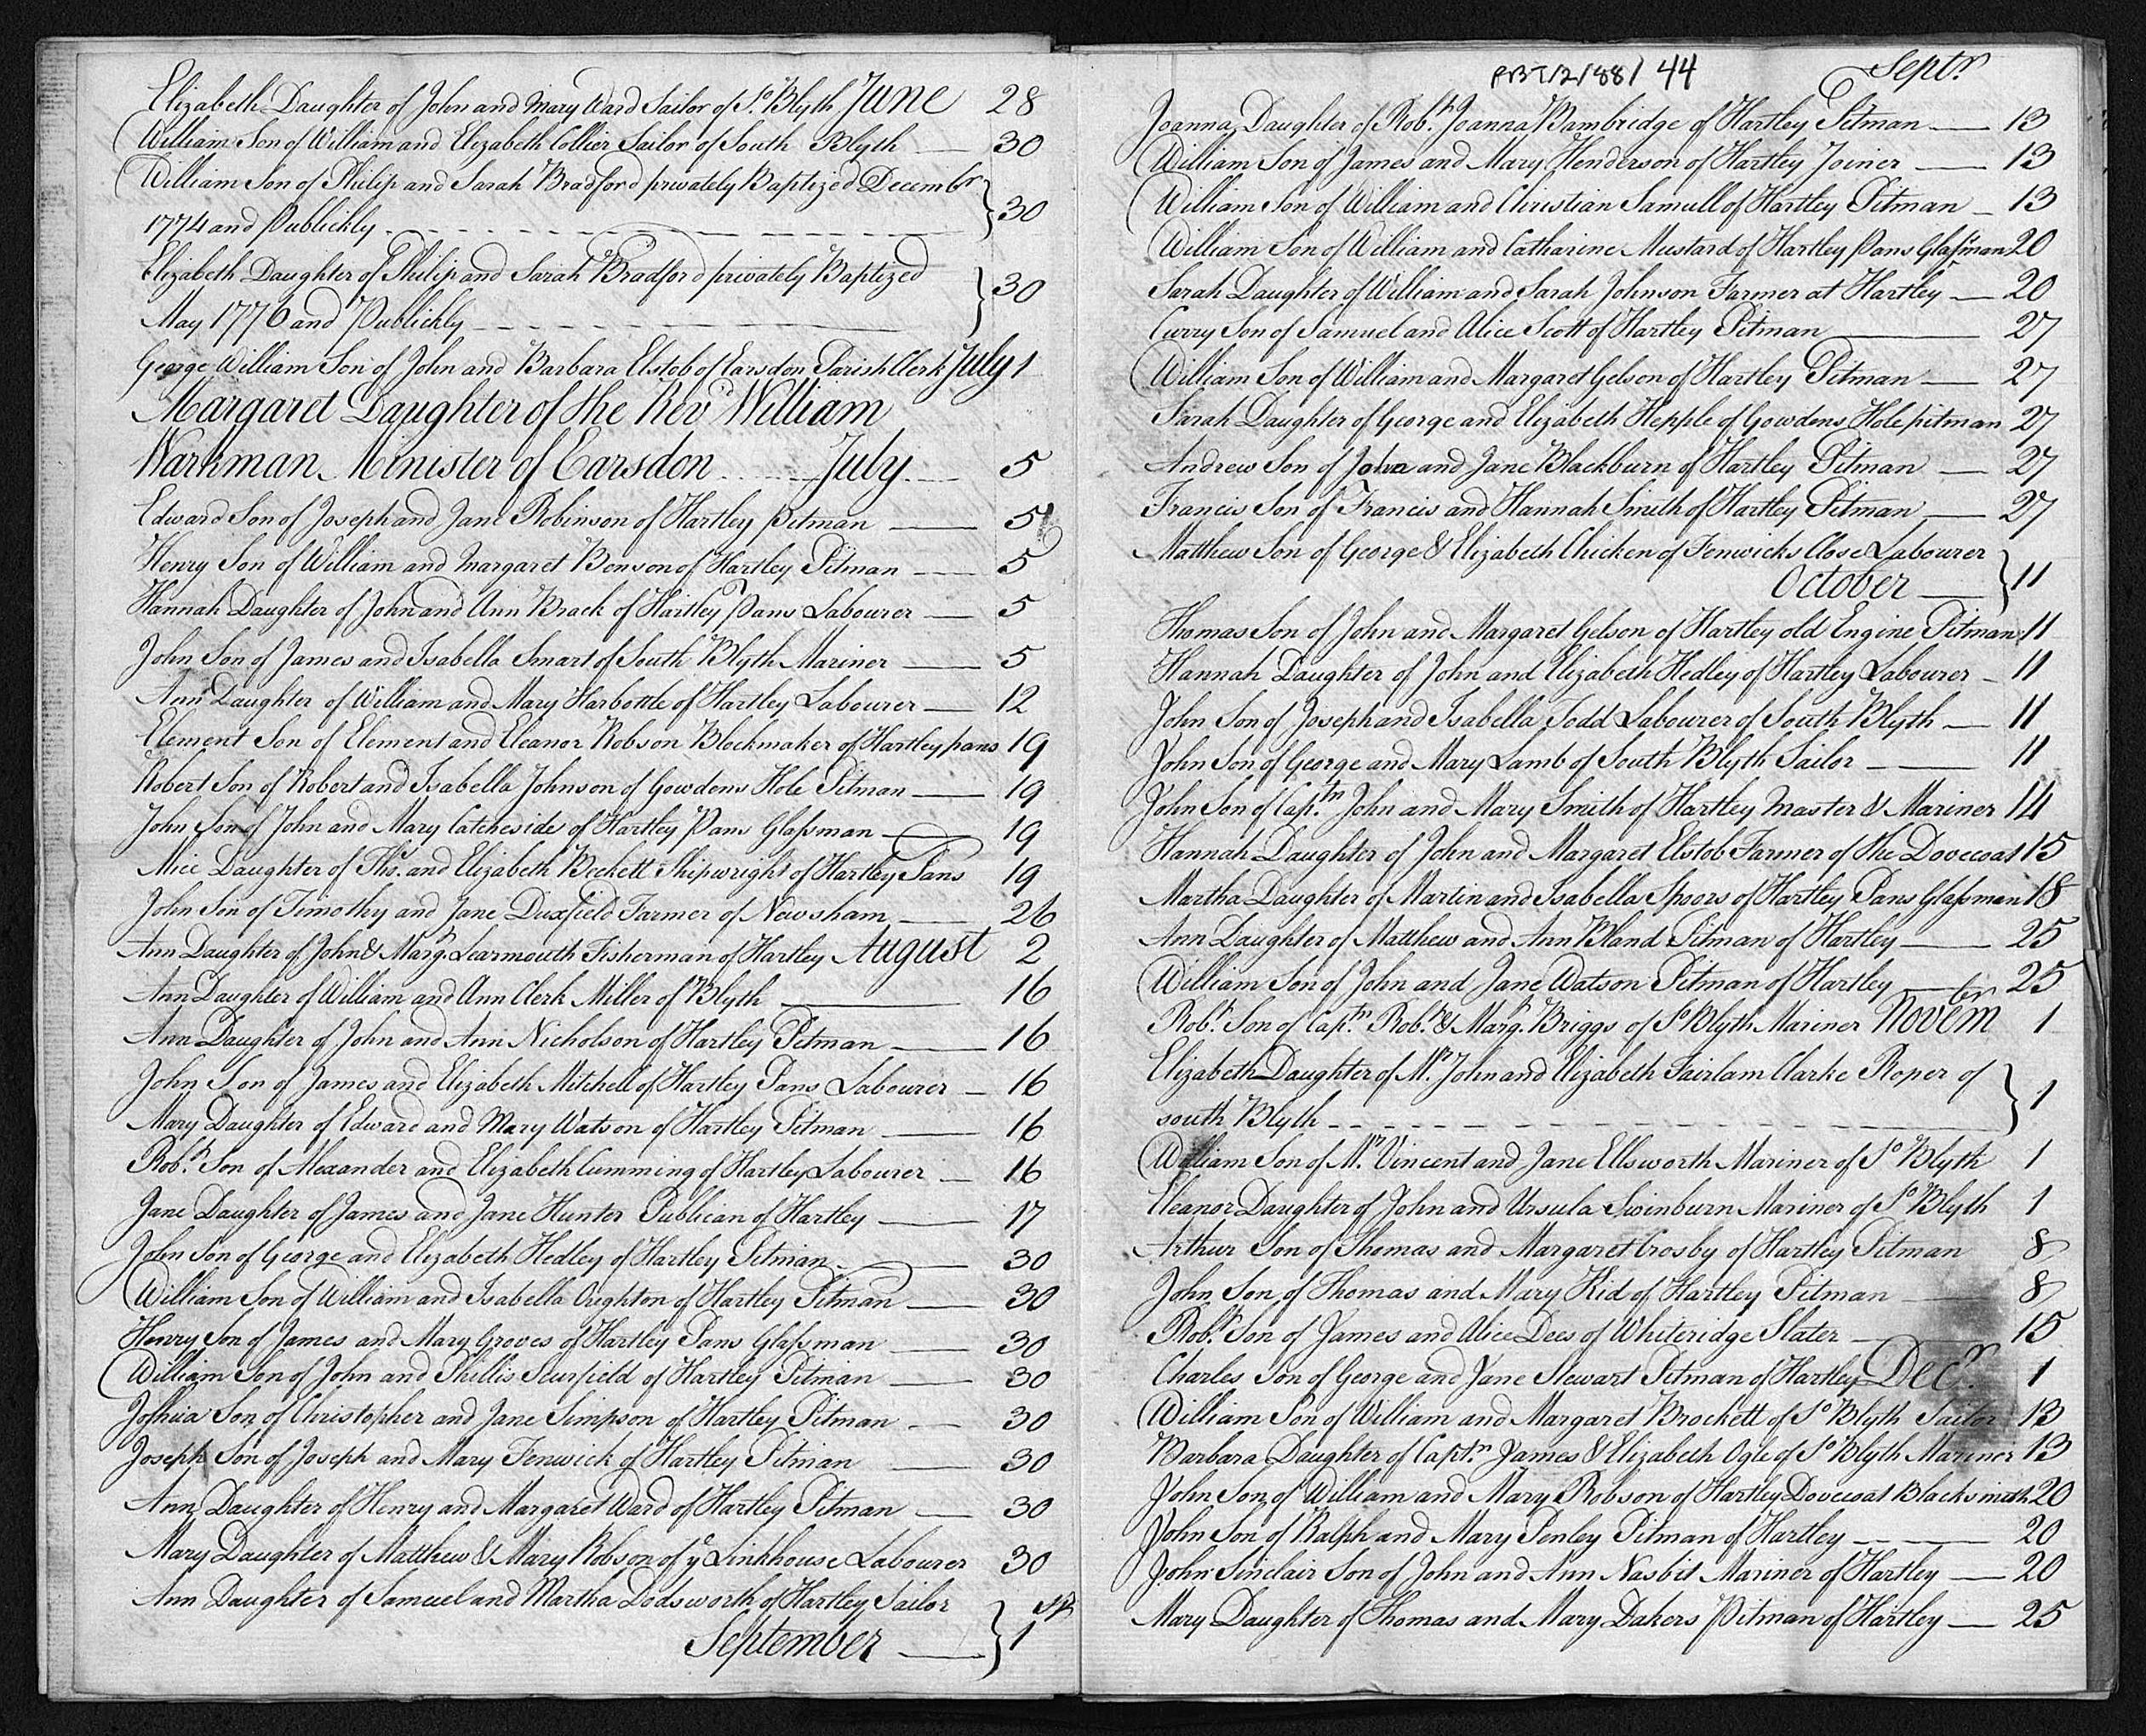 Elizabeth Daughter of John and Mary Ward Sailor of So. Blyth June 28
William Son of William and Elizabeth Collier Sailor of South Blyth 30
William Son of Philip and Sarah Bradford privately Baptized Decembr
1774 and Publickly 30
Elizabeth Daughter of Philip and Sarah Bradford privately Baptized
May 1776 and Publickly 30
George William Son of John and Barbara Elstob of Earsdon Parish Clerk July 1
Margaret Daughter of the Revd William
Warkman Minister of Earsdon July 5
Edward Son of Joseph and Jane Robinson of Hartley pitman 5
Henry Son of William and Margaret Bonson of Hartley Pitman 5
Hannah Daughter of John and Ann Brack of Hartley Pans Labourer 5
John Son of James and Isabella Smart of South Blyth Mariner 5
Ann Daughter of William and Mary Harbottle of Hartley Labourer 12
Clement Son of Clement and Eleanor Robson Blockmaker of Hartley pans 19
Robert Son of Robert and Isabella Johnson of Gowdens Hole Pitman 19
John Son of John and Mary Catcheside of Hartley Pans Glassman 19
Alice Daughter of Thos. and Elizabeth Beckett Shipwright of Hartley Pans 19
John Son of Timothy and Jane Duxfield Farmer of Newsham 26
Ann Daughter of John & Margt. Learmouth Fisherman of Hartley August 2
Ann Daughter of William and Ann Clerk Miller of Blyth 16
Ann Daughter of John and Ann Nicholson of Hartley Pitman 16
John Son of James and Elizabeth Mitchell of Hartley Pans Labourer 16
Mary Daughter of Edward and Mary Watson of Hartley Pitman 16
Robt. Son of Alexander and Elizabeth Cumming of Hartley Labourer 16
Jane Daughter of James and Jane Hunter Publican of Hartley 17
John Son of George and Elizabeth Hedley of Hartley Pitman 30
William Son of William and Isabella Crighton of Hartley Pitman 30
Henry Son of James and Mary Groves of Hartley Pans Glassman 30
William Son of John and Phillis Scurfield of Hartley Pitman 30
Joshua Son of Christopher and Jane Simpson of Hartley Pitman 30
Joseph Son of Joseph and Mary Fenwick of Hartley Pitman 30
Ann Daughter of Henry and Margaret Ward of Hartley Pitman 30
Mary Daughter of Matthew & Mary Robson of ye Linkhouse Labourer 30
Ann Daughter of Samuel and Martha Dodsworth of Hartley Sailor
September 1st
DBT/2/88/ 44 Septr
Joanna Daughter of Robt. Joanna Bambridge of Hartley Pitman 13
William Son of James and Mary Henderson of Hartley Joiner 13
William Son of William and Christian Samull of Hartley Pitman 13
William Son of William and Catharine Mustard of Hartley Pans Glassman 20
Sarah Daughter of William and Sarah Johnson Farmer at Hartley 20
Curry Son of Samuel and Alice Scott of Hartley Pitman 27
William Son of William and Margaret Gelson of Hartley Pitman 27
Sarah Daughter of George and Elizabeth Hepple of Gowdens Hole pitman 27
Andrew Son of John and Jane Blackburn of Hartley Pitman 27
Francis Son of Francis and Hannah Smith of Hartley Pitman 27
Matthew Son of George & Elizabeth Chicken of Fenwicks Close Labourer
October 11
Thomas Son of John and Margaret Gelson of Hartley old Engine Pitman 11
Hannah Daughter of John and Elizabeth Hedley of Hartley Labourer 11
John Son of Joseph and Isabella Todd Labourer of South Blyth 11
John Son of George and Mary Lamb of South Blyth Sailor 11
John Son of Captn. John and Mary Smith of Hartley Master & Mariner 14
Hannah Daughter of John and Margaret Elstob Farmer of the Dovecoat 15
Martha Daughter of Martin and Isabella Spoors of Hartley Pans Glassman 18
Ann Daughter of Matthew and Ann Bland Pitman of Hartley 25
William Son of John and Jane Watson Pitman of Hartley 25
Robt. Son of Captn. Robt. & Margt. Briggs of So Blyth Mariner Novembr 1
Elizabeth Daughter of Mr. John and Elizabeth Fairlam Clarke Roper of
south Blyth 1
William Son of Mr. Vincent and Jane Ellsworth Mariner of So Blyth 1
Eleanor Daughter of John and Ursula Swinburn Mariner of So Blyth 1
Arthur Son of Thomas and Margaret Crosby of Hartley Pitman 8
John Son of Thomas and Mary Kid of Hartley Pitman 8
Robt. Son of James and Alice Dees of Whiteridge Slater 15
Charles Son of George and Jane Stewart Pitman of Hartley Decr. 1
William Son of William and Margaret Brockett of So Blyth Sailor 13
Barbara Daughter of Captn. James & Elizabeth Ogle of So Blyth Mariner 13
John Son of William and Mary Robson of Hartley Dovecoat Blacksmith 20
John Son of Ralph and Mary Penley Pitman of Hartley 20
John Sinclair Son of John and Ann Nasbit Mariner of Hartley 20
Mary Daughter of Thomas and Mary Dakers Pitman of Hartley 25